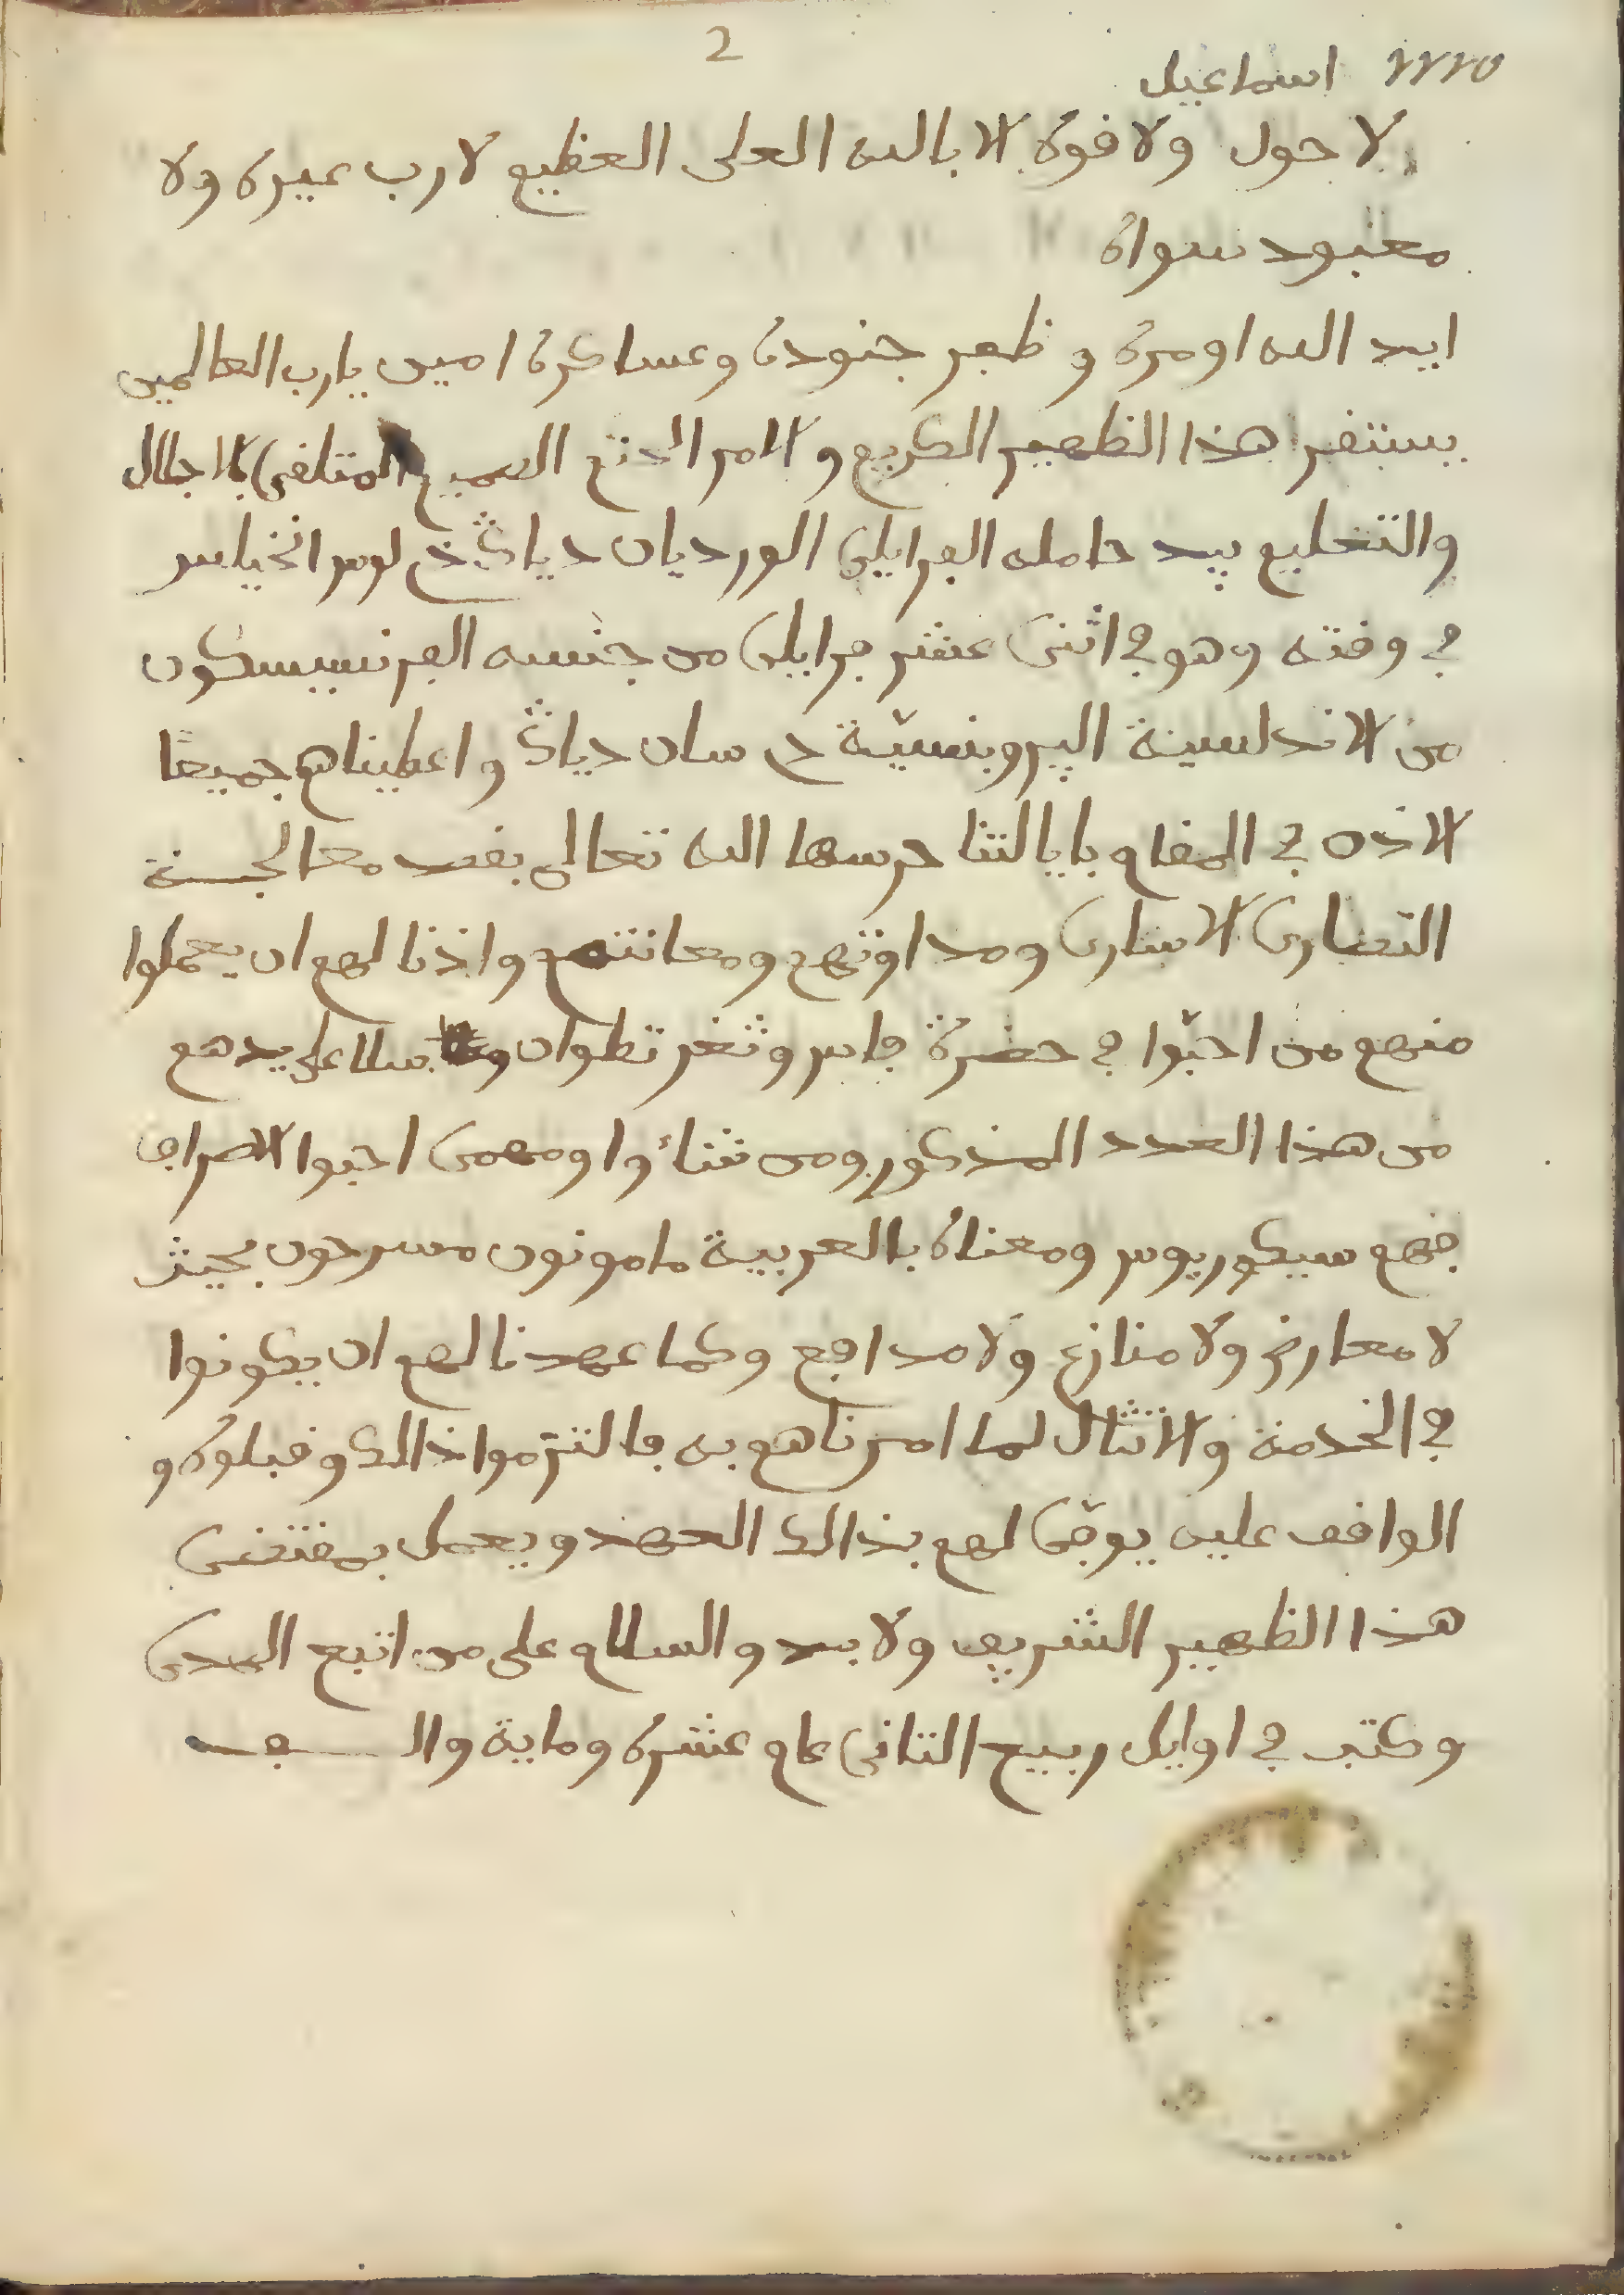 2
اسماعيل
لا حول ولا قوة الا بالله العلى العظيم لا رب غيره ولا
معبود سواه
ايد الله اومره و ظفر جنوده وعساكره امين يارب العالمين
يستقر هذا الظهير الكريم و الامر الصميم المتلقى بالاجلال
والتعظيم بيد حامله الفرايلى الورديان دياڨ
في وقته وهو في اثنى عشر فرايلى من جنسه الفرنسيسكون
من الاندلسية الپروبنسيّة د سان دياڨ و اعطيناهم جميعًا
الاذن في المقام بايالتنا حرسها الله تعالى بقصد معالجة
النصارى الاسارى ومداوتهم ومعانتهم واذنا لهم ان يعملوا
منهم من احبّوا في حضرة فاس وثغر تطوان و سلا على يدهم
من هذا العدد المذكور ومن شاءوا ومهمى احبوا الانصراف
فهم سيكوريوس ومعناه بالعربية مامونون مسرحون بحيث
لا معارض ولا منازع ولا مدافع وكما عهدنا لهم ان يكونوا
في الخدمة والامتثال لما امرناهم به فالتزموا ذالك وقبلوه و
الواقف عليه يوفّى لهم بذالك العهد ويعمل بمقتضى
هذا الظهير الشريف ولا بد والسلام على من اتبع الهدى
وكتب في اوايل ربيع الثانى عام عشرة وماية والف